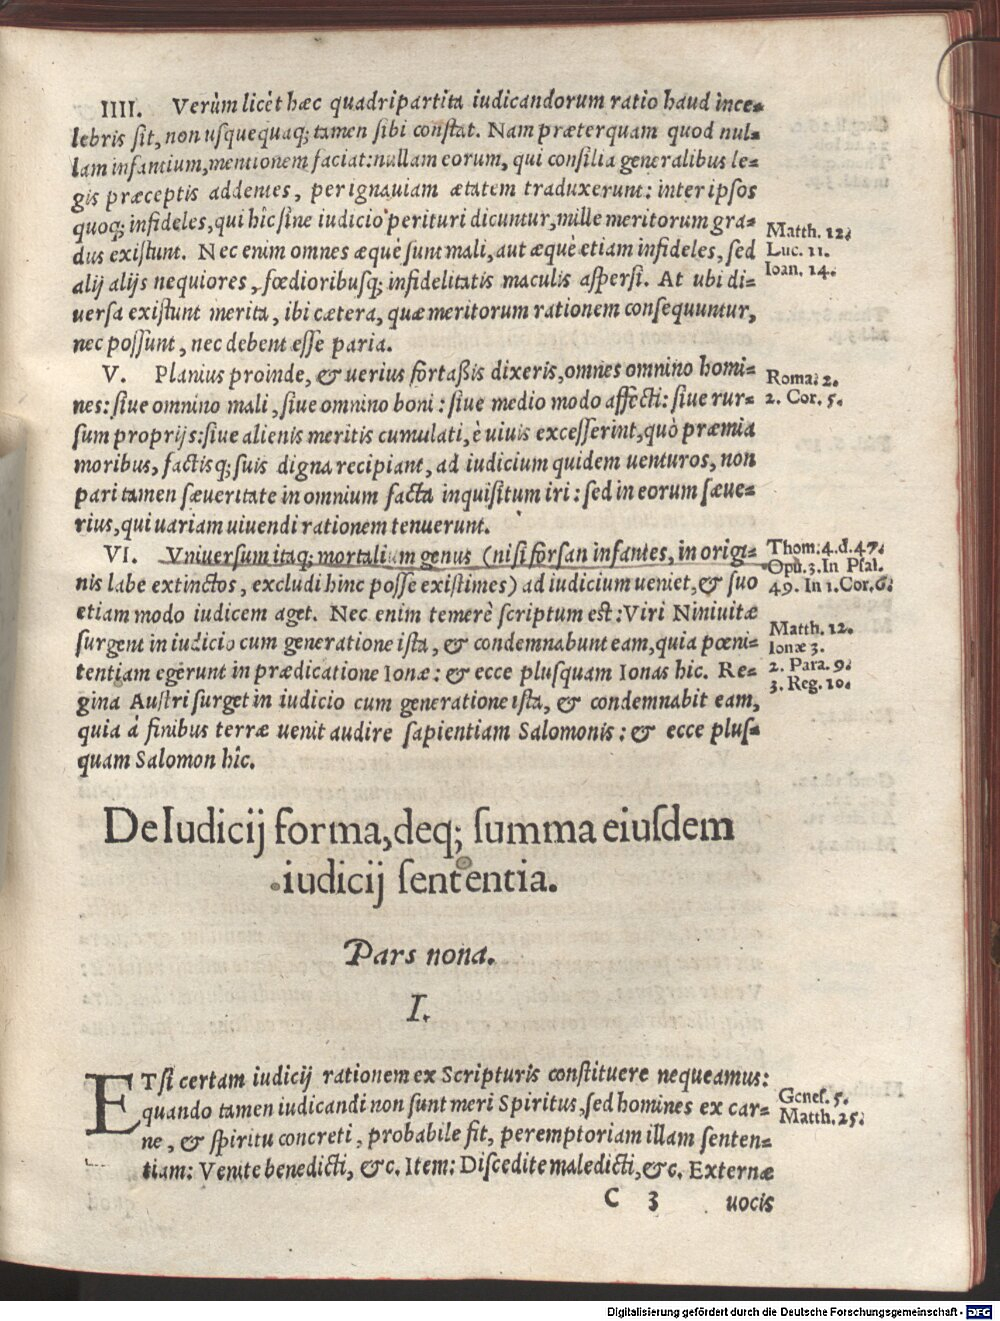 IIII. Verùm licèt hæc quadripartita iudicandorum ratio haud ince=
lebris ſit, non uſquequaq; tamen ſibi conſtat. Nam præterquam quod nul=
lam infantium, mentionem faciat: nullam eorum, qui conſilia generalibus le=
gis præceptis addentes, per ignauiam ætatem traduxerunt: inter ipſos
quoq; infideles, qui hîc ſine iudicio perituri dicuntur, mille meritorum gra=
dus exiſtunt. Nec enim omnes æquè ſunt mali, aut æquè etiam infideles, ſed
alij alijs nequiores, fœdioribusq; infidelitatis maculis aſperſi. At ubi di=
uerſa exiſtunt merita, ibi cætera, quæ meritorum rationem conſequuntur,
nec poſſunt, nec debent eſſe paria.
Matth. 12.
Luc. 11.
Ioan. 14.
V. Planius proinde, & uerius fortaßis dixeris, omnes omnino homi=
nes: ſiue omnino mali, ſiue omnino boni: ſiue medio modo affecti: ſiue rur=
ſum proprijs: ſiue alienis meritis cumulati, è uiuis exceſſerint, quò præmia
moribus, factisq; ſuis digna recipiant, ad iudicium quidem uenturos, non
pari tamen ſæueritate in omnium facta inquiſitum iri: ſed in eorum ſæue=
rius, qui uariam uiuendi rationem tenuerunt.
Roma. 2.
2. Cor. 5.
VI. Vniuerſum itaq; mortalium genus (niſi forſan infantes, in origi=
nis labe extinctos, excludi hinc poſſe exiſtimes) ad iudicium ueniet, & ſuo
etiam modo iudicem aget. Nec enim temerè ſcriptum eſt: Viri Niniuitæ
ſurgent in iudicio cum generatione iſta, & condemnabunt eam, quia pœni=
tentiam egerunt in prædicatione Ionæ: & ecce pluſquam Ionas hic. Re=
gina Auſtri ſurget in iudicio cum generatione iſta, & condemnabit eam,
quia à finibus terræ uenit audire ſapientiam Salomonis: & ecce pluſ=
quam Salomon hîc.
Thom. 4. d. 47.
Opu. 3. In Pſal.
49. In 1. Cor. 6.
Matth. 12.
Ionæ 3.
2. Para. 9.
3. Reg. 10.
De Iudicij forma, deq; ſumma eiuſdem
iudicij ſententia.
Pars nona.
I.
ETſi certam iudicij rationem ex Scripturis conſtituere nequeamus:
quando tamen iudicandi non ſunt meri Spiritus, ſed homines ex car=
ne, & ſpiritu concreti, probabile fit, peremptoriam illam ſenten=
tiam: Venite benedicti, &c. Item: Diſcedite maledicti, &c. Externæ
Geneſ. 5.
Matth. 25.
C 3 uocis
Digitalisierung gefördert durch die Deutsche Forschungsgemeinschaft - DFG